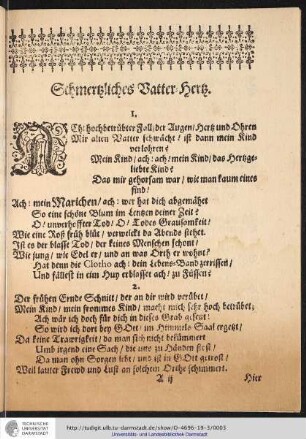 Schmertzliches Vatter-Hertz.
1.
ACh: hochbetrübter Fall/ der Augen/ Hertz und Ohren
Mir alten Vatter schwächt/ ist dann mein Kind
verlohren?
Mein Kind/ ach: ach: mein Kind/ das Hertzge-
liebte Kind?
Das mir gehorsam war/ wie man kaum eines
find/
Ach: mein Marichen/ ach: wer hat dich abgemähet
So eine schöne Blum im Lentzen deiner Zeit?
O/ unverhoffter Tod/ O/ Todes Grausamkeit/
Wie eine Roß früh blüt/ verwelckt da Abends stehet.
Ist es der blasse Tod/ der keines Menschen schont/
Wie jung/ wie Edel er/ und an was Orth er wohnt?
Hat denn die Clotho ach: dein Lebens-Band zerrissen/
Und fällest in eim Huy erblasset ach: zu Füssen?
2.
Der frühen Ernde Schnitt/ der an dir wird verübet/
Mein Kind/ mein frommes Kind/ macht mich sehr hoch betrübet;
Ach wär ich doch für dich in dieses Grab gesetzt!
So wird ich dort bey GOtt/ im Himmels-Saal ergetzt/
Da keine Traurigkeit/ da man sich nicht bekümmert
Umb irgend eine Sach/ die uns zu Händen stost/
Da man ohn Sorgen lebt/ und ist in GOtt getrost/
Weil lauter Frewd und Lust an solchen Orthe schimmert.
A ij
Hier
TECHNISCHE
UNIVERSITÄT
DARMSTADT
http://tudigit.ulb.tu-darmstadt.de/show/D-4696-19-3/0003
Universitäts- und Landesbibliothek Darmstadt